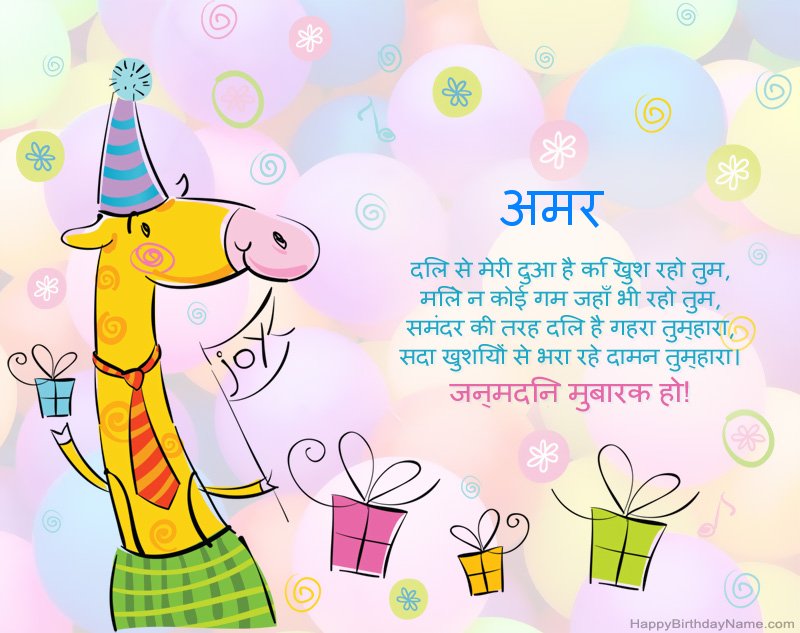 अमर
दिल से मेरी दुआ है कि खुश रहो तुम,
मिले न कोई गम जहाँ भी रहो तुम,
समंदर की तरह दिल है गहरा तुम्हारा,
सदा खुशियों से भरा रहे दामन तुम्हारा।
जन्मदिन मुबारक हो!
joy
HappyBirthdayName.com